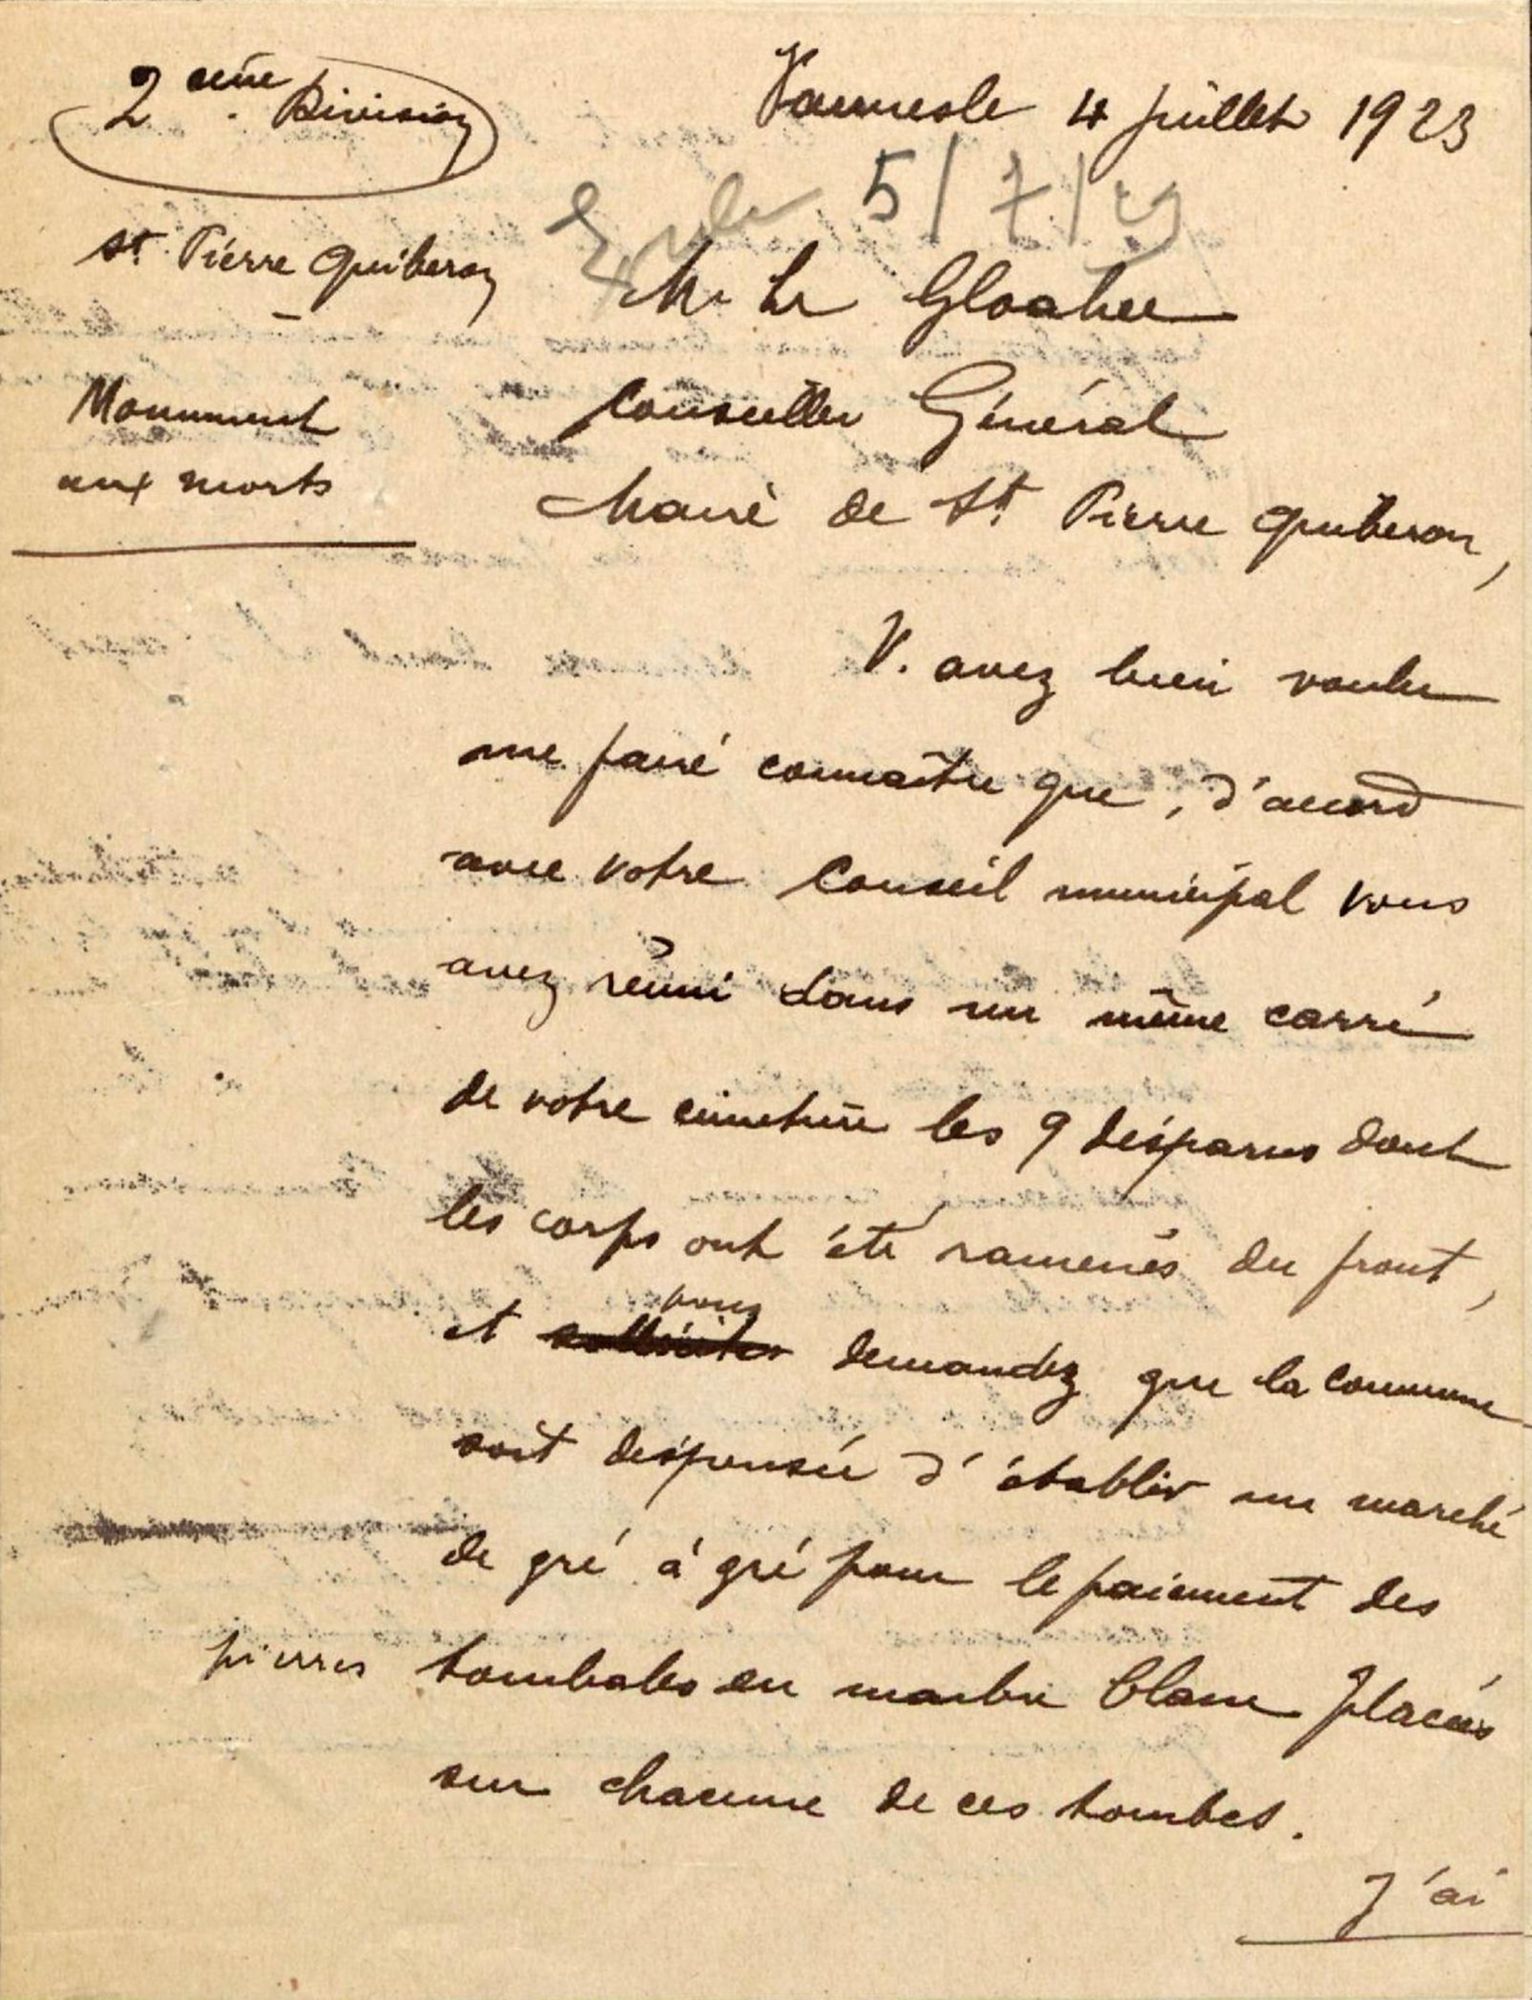 2ème Division
Vannes le 4 juillet 1923
5/7/23
St Pierre Quiberon
Mr Le Gloahec
Monument
aux morts
Conseiller Général
Maire de St Pierre Quiberon,
V. avez bien voulu
me faire connaître que, d'accord
avec votre Conseil municipal vous
avez réuni dans un même carré
de votre cimetière les 9 disparus dont
les corps ont été ramenés du front,
vous
et demandez que la commune
soit dispensée d'établir un marché
de gré à gré pour le paiement des
pierres tombales en marbre blanc placées
sur chacune de ces tombes.
J'ai